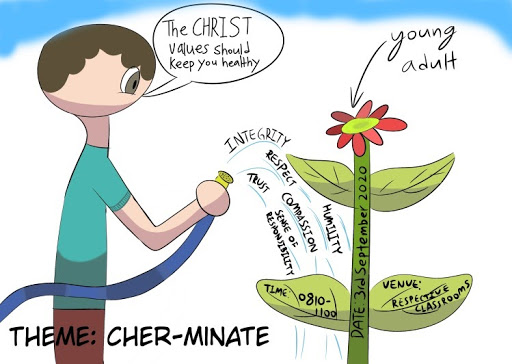 The CHRIST
values should
keep you healthy
young
adult
INTEGRITY
RESPECT
TRUST
COMPASSION
HUMILITY
SENSE OF
RESPONSIBILITY
DATE: 3rd September 2020
TIME: 0810-
1100
VENUE:
RESPECTIVE
CLASSROOMS
THEME: CHER-MINATE